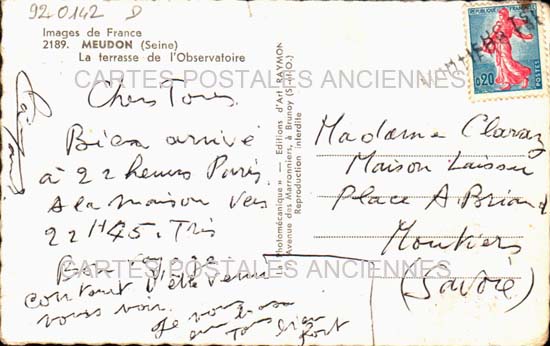 920142 D
Images de France
2189. MEUDON (Seine)
La terrasse de l'Observatoire
Chers Tous
Bien arrivé
à 22 heures Paris
à la maison vers
22H45. Très
Bon
content d'être venu
vous voir. Je vous
Tous bien
fort
"Photomécanique" — Editions d'Art RAYMON
Avenue des Marronniers, à Brunoy (S.-&-O.)
Reproduction interdite
REPUBLIQUE FRANÇAISE
0,20
POSTES
Madame Claraz
Maison
Place A. Briand
Moutiers
(Savoie)
CARTES POSTALES ANCIENNES
CARTES POSTALES ANCIENNES